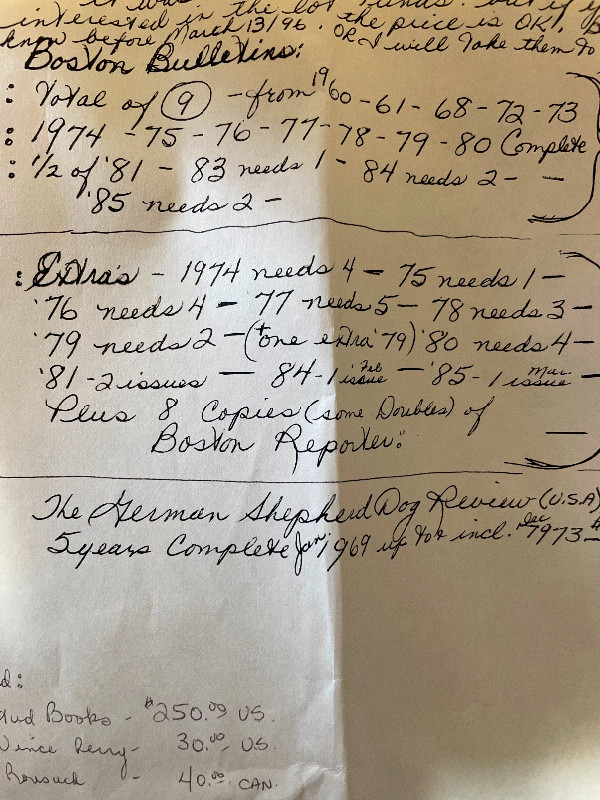 it was in the lot funds. but if y
interested in the lot the price is OK. B
know before March 13/96. OR I will Take them To
Boston Bulletins:
: Total of 9 - from 1960 - 61 - 68 - 72 - 73
: 1974 - 75 - 76 - 77 - 78 - 79 - 80 Complete
: 1/2 of '81 - 83 needs 1 - 84 needs 2 - -
'85 needs 2 -
: Extra's - 1974 needs 4 - 75 needs 1 -
'76 needs 4 - 77 needs 5 - 78 needs 3 -
'79 needs 2 - (+ one extra '79) '80 needs 4 -
'81 - 2 issues - 84 - 1 Feb issue - '85 - 1 Mar. issue -
Plus 8 Copies (some Doubles) of
Boston Reporter: -
The German Shepherd Dog Review (U.S.A)
5 years Complete Jan, 1969 up to & incl. Dec 1973 - $
d:
Stud Books - $250.00 US.
Vince Perry - 30.00 U.S.
- 40.00 CAN.